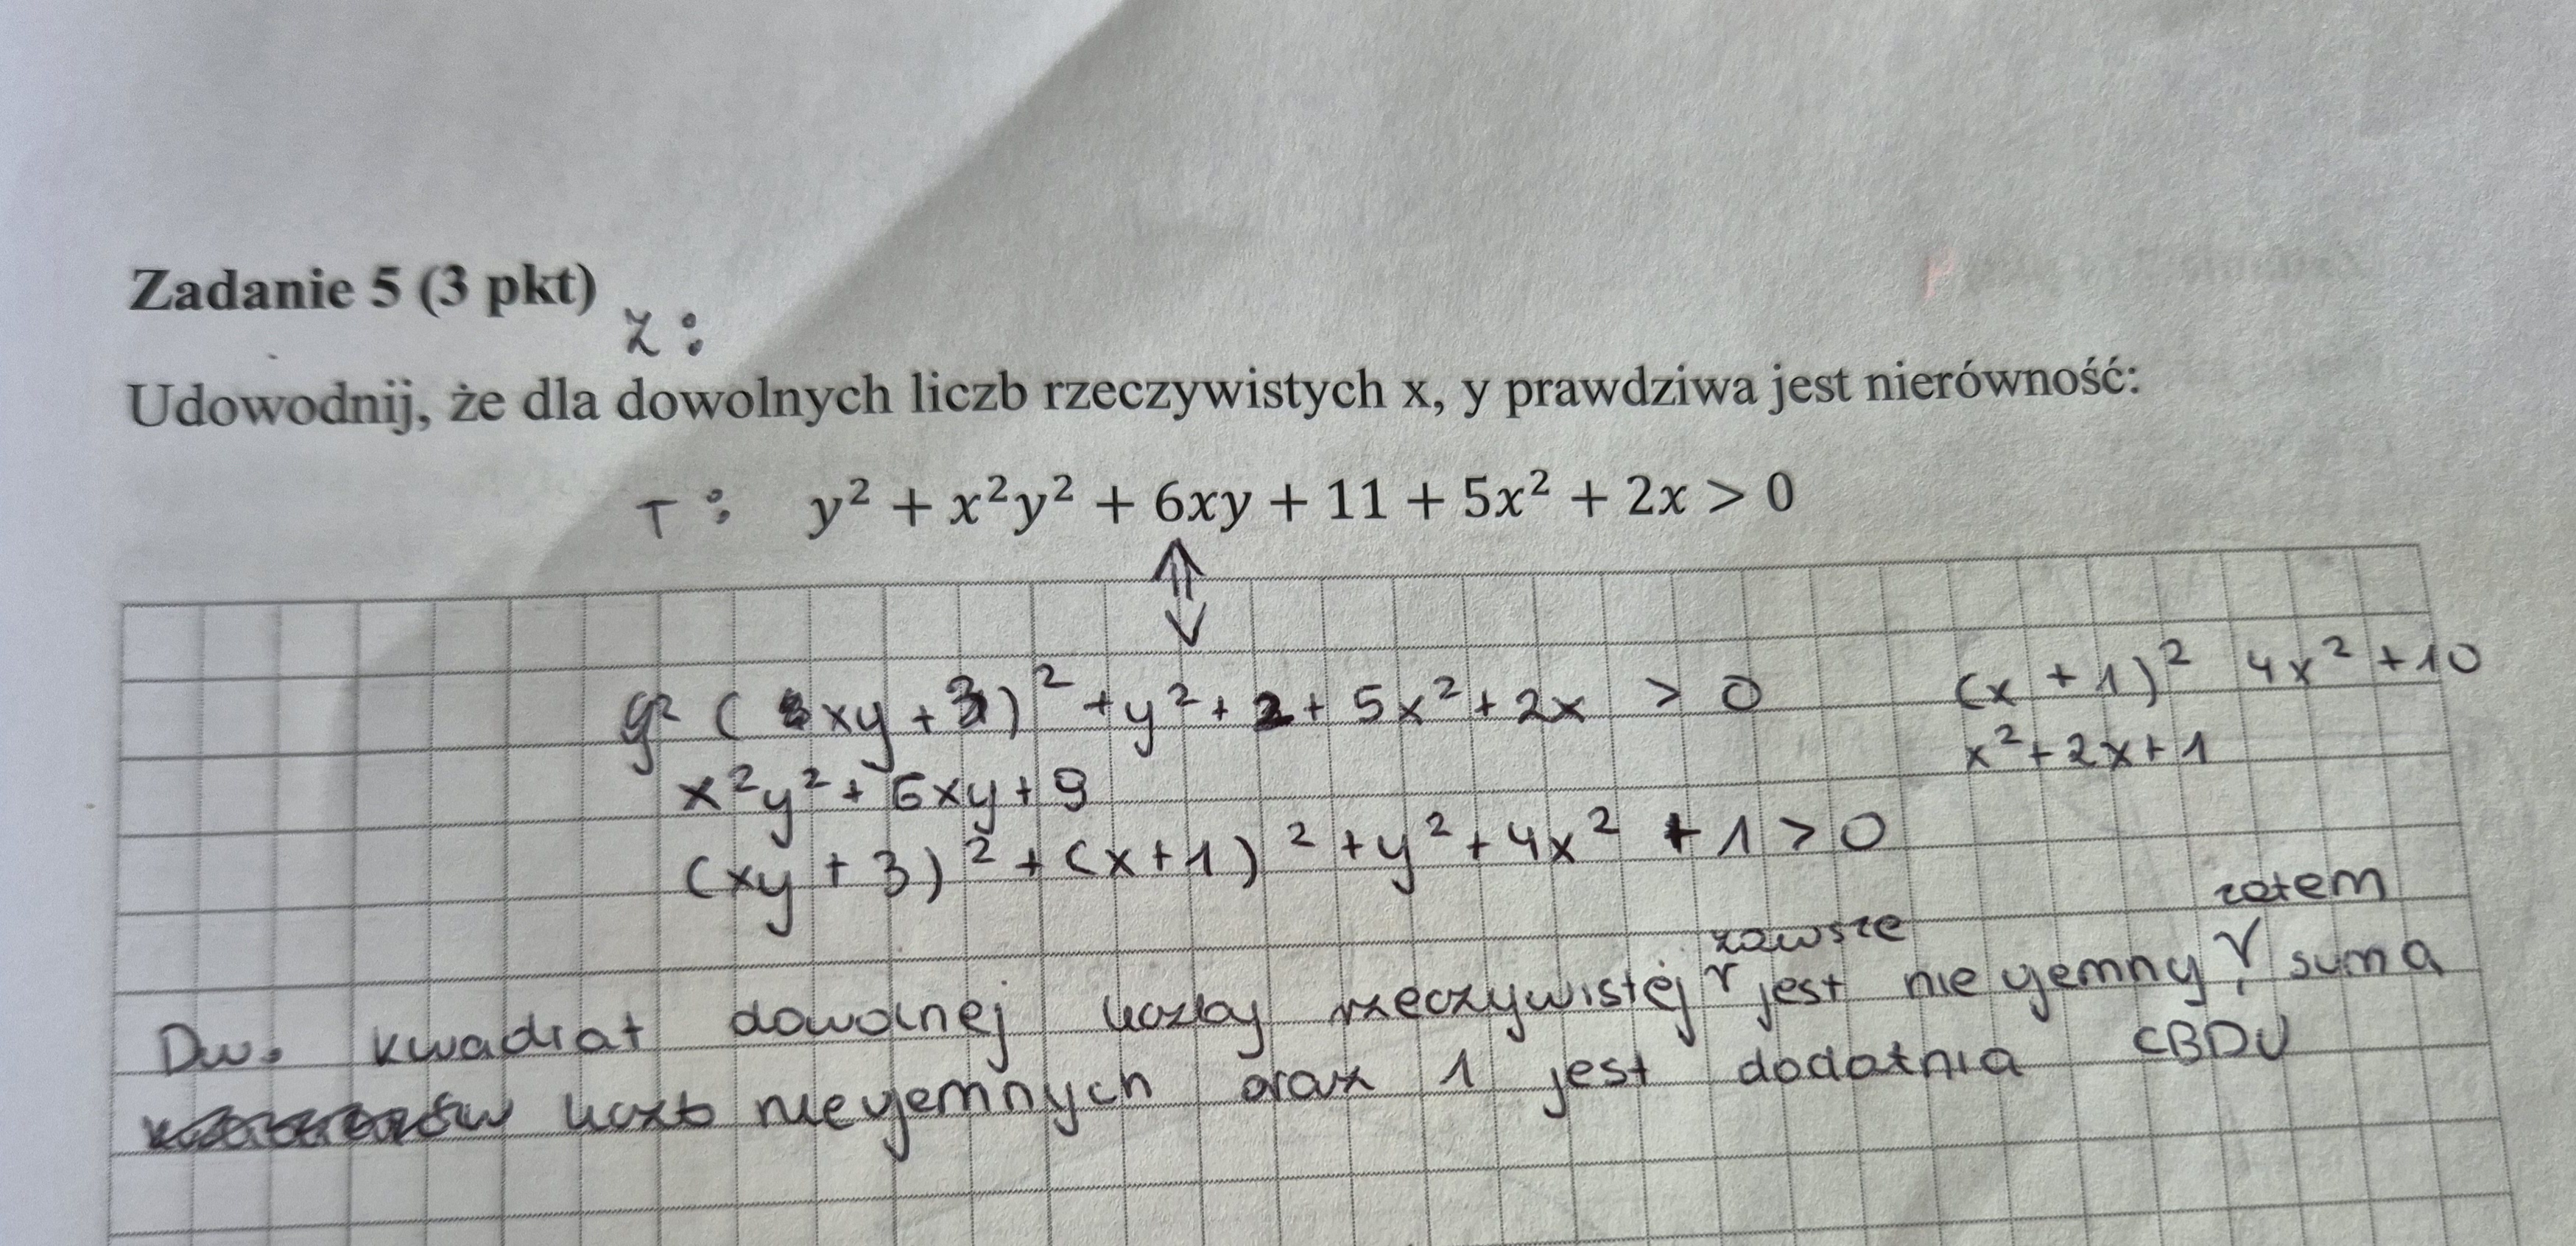 Zadanie 5 (3 pkt)
Z:
Udowodnij, że dla dowolnych liczb rzeczywistych x, y prawdziwa jest nierówność:
T: y² + x²y² + 6xy + 11 + 5x² + 2x > 0
⇕
y² (xy + 3)² + y² + 2 + 5x² + 2x > 0
(x + 1)² 4x² + 10
x² + 2x + 1
x²y² + 6xy + 9
(xy + 3)² + (x + 1)² + y² + 4x² + 1 > 0
Dw. kwadrat dowolnej liczby rzeczywistej zawsze jest nieujemny, zatem suma
liczb nieujemnych oraz 1 jest dodatnia CBDU